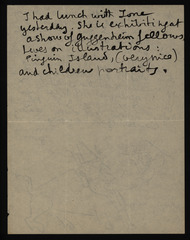 I had lunch with Ione
yesterday. She is exhibiting at
a show of guggenheim fellows
lives on illustrations:
Pinguin Island, (very nice)
and children portraits.